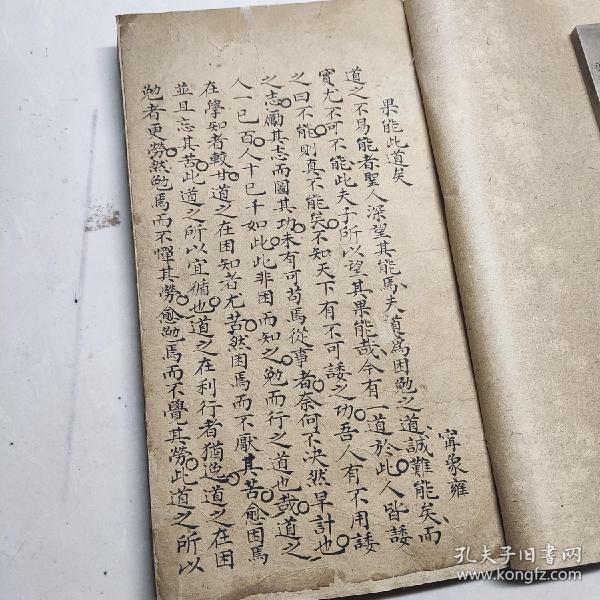 果能此道矣
甯象雍
道之不易能者聖人深望其能焉夫道爲困勉之道誠難能矣而
實尤不可不能此夫子所以望其果能哉今有一道於此人皆諉
之曰不能則真不能矣不知天下有不可諉之功吾人有不用諉
之志勵其志而圖其功未有可苟焉從事者奈何不决然早計也
人一己百人十己千如此此非困而知之勉而行之道也哉道之
在學知者較甘道之在困知者尤苦然困焉而不厭其苦愈困焉
並且忘其苦此道之所以宜循也道之在利行者猶逸道之在困
勉者更勞然勉焉而不憚其勞愈勉焉而不覺其勞此道之所以
孔夫子旧书网
www.kongfz.com